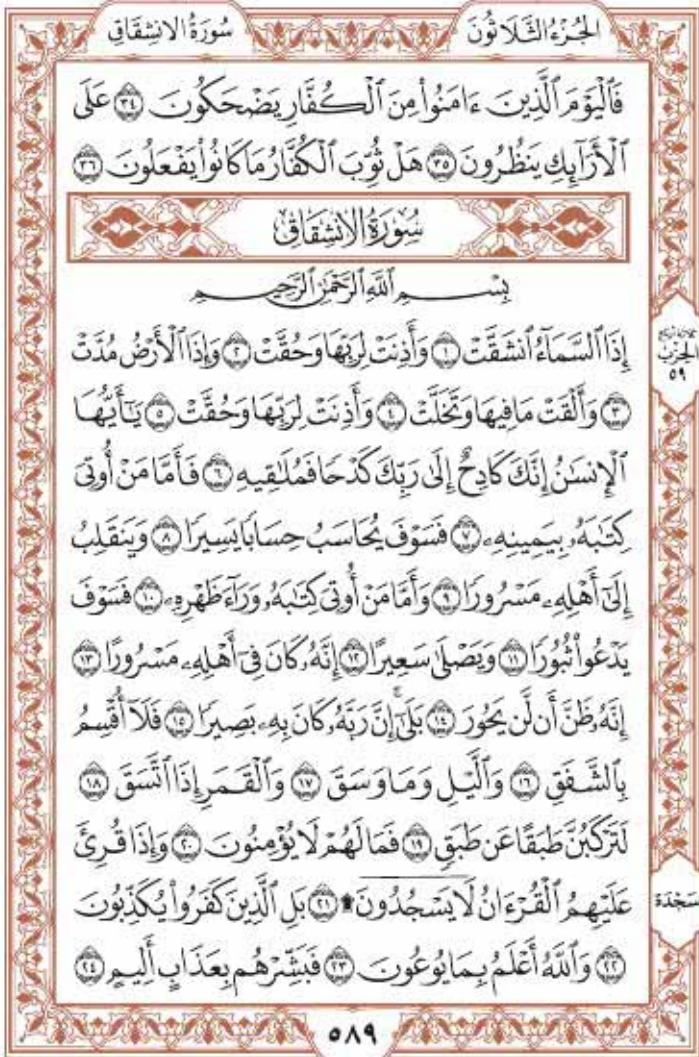 الجُزْءُ الثَّلَاثُونَ
سُورَةُ الانشِقَاقِ
فَٱلْيَوْمَ ٱلَّذِينَ ءَامَنُوا۟ مِنَ ٱلْكُفَّارِ يَضْحَكُونَ ٣٤ عَلَى
ٱلْأَرَآئِكِ يَنظُرُونَ ٣٥ هَلْ ثُوِّبَ ٱلْكُفَّارُ مَا كَانُوا۟ يَفْعَلُونَ ٣٦
سُورَةُ الانشِقَاقِ
بِسْمِ ٱللَّهِ ٱلرَّحْمَٰنِ ٱلرَّحِيمِ
إِذَا ٱلسَّمَآءُ ٱنشَقَّتْ ١ وَأَذِنَتْ لِرَبِّهَا وَحُقَّتْ ٢ وَإِذَا ٱلْأَرْضُ مُدَّتْ
٣ وَأَلْقَتْ مَا فِيهَا وَتَخَلَّتْ ٤ وَأَذِنَتْ لِرَبِّهَا وَحُقَّتْ ٥ يَٰٓأَيُّهَا
ٱلْإِنسَٰنُ إِنَّكَ كَادِحٌ إِلَىٰ رَبِّكَ كَدْحًا فَمُلَٰقِيهِ ٦ فَأَمَّا مَنْ أُوتِىَ
كِتَٰبَهُۥ بِيَمِينِهِۦ ٧ فَسَوْفَ يُحَاسَبُ حِسَابًا يَسِيرًا ٨ وَيَنقَلِبُ
إِلَىٰٓ أَهْلِهِۦ مَسْرُورًا ٩ وَأَمَّا مَنْ أُوتِىَ كِتَٰبَهُۥ وَرَآءَ ظَهْرِهِۦ ١٠ فَسَوْفَ
يَدْعُوا۟ ثُبُورًا ١١ وَيَصْلَىٰ سَعِيرًا ١٢ إِنَّهُۥ كَانَ فِىٓ أَهْلِهِۦ مَسْرُورًا ١٣
إِنَّهُۥ ظَنَّ أَن لَّن يَحُورَ ١٤ بَلَىٰٓۚ إِنَّ رَبَّهُۥ كَانَ بِهِۦ بَصِيرًا ١٥ فَلَآ أُقْسِمُ
بِٱلشَّفَقِ ١٦ وَٱلَّيْلِ وَمَا وَسَقَ ١٧ وَٱلْقَمَرِ إِذَا ٱتَّسَقَ ١٨
لَتَرْكَبُنَّ طَبَقًا عَن طَبَقٍ ١٩ فَمَا لَهُمْ لَا يُؤْمِنُونَ ٢٠ وَإِذَا قُرِئَ
عَلَيْهِمُ ٱلْقُرْءَانُ لَا يَسْجُدُونَ ۩ ٢١ بَلِ ٱلَّذِينَ كَفَرُوا۟ يُكَذِّبُونَ
٢٢ وَٱللَّهُ أَعْلَمُ بِمَا يُوعُونَ ٢٣ فَبَشِّرْهُم بِعَذَابٍ أَلِيمٍ ٢٤
الحِزْبُ
٥٩
سَجْدَة
٥٨٩